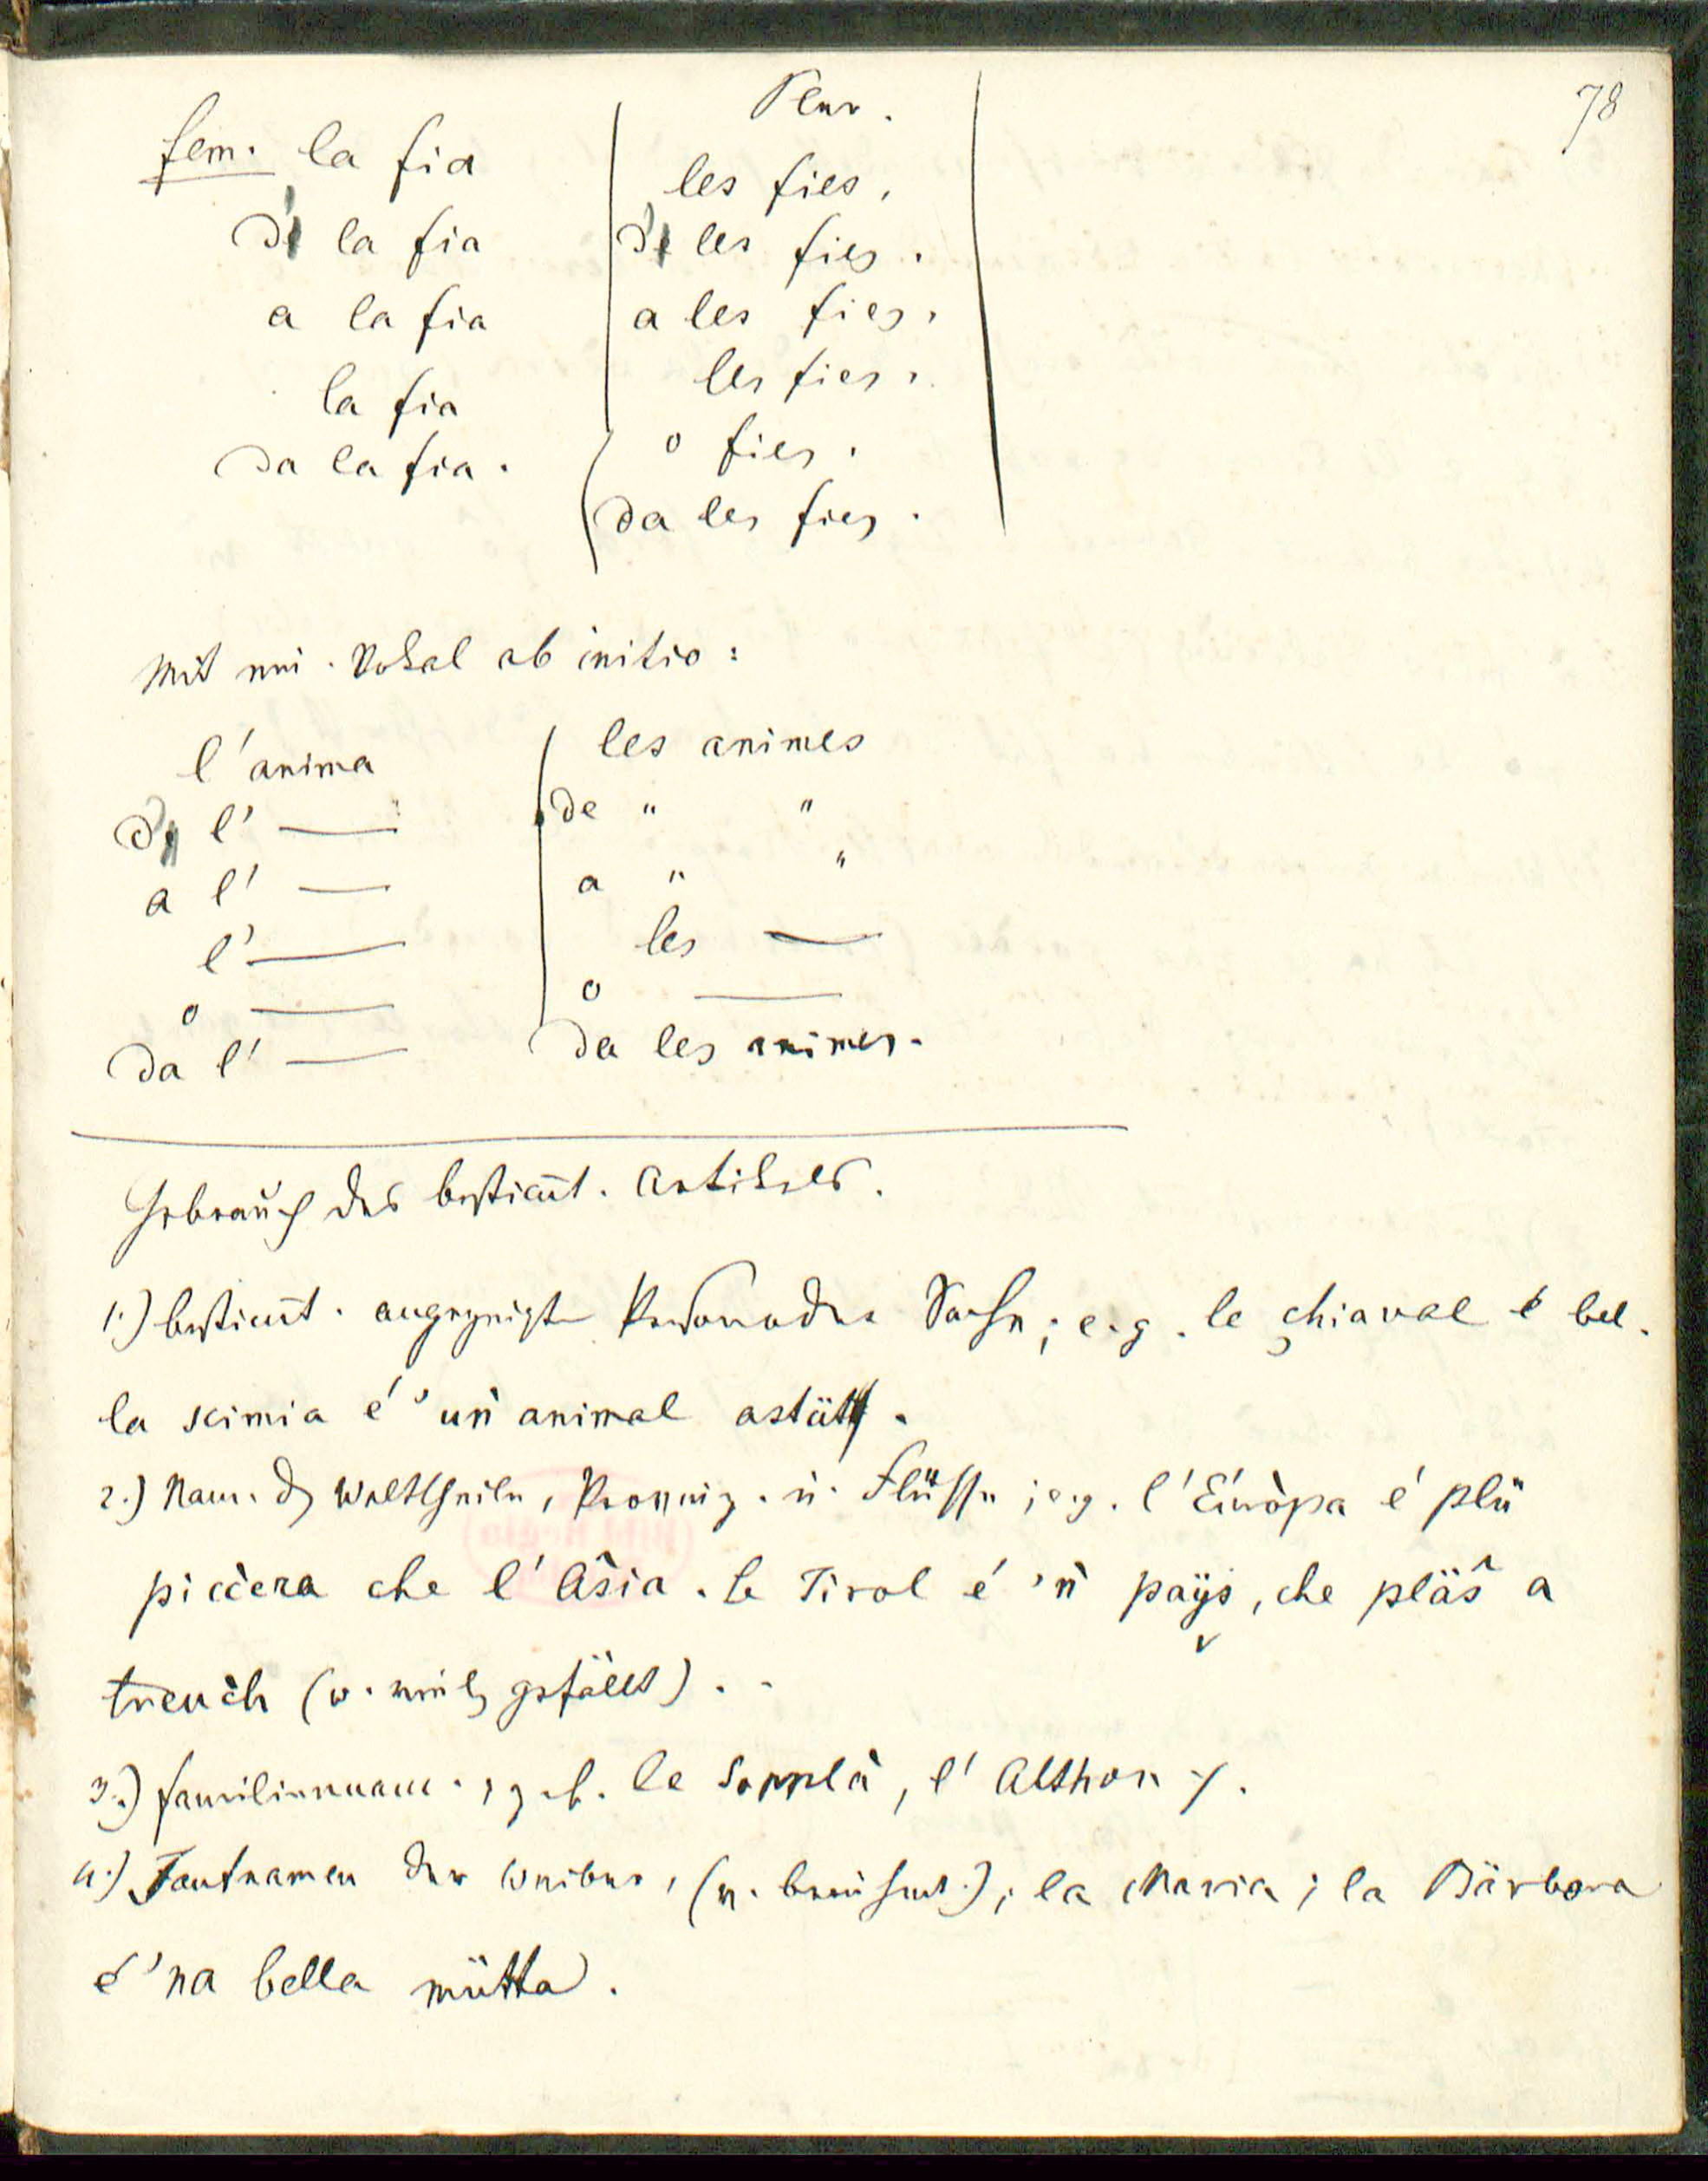 78
Plur.
fem. la fia les fies,
de la fia de les fies.
a la fia a les fies,
la fia les fies,
o fies.
da la fia. da les fies.
Mit ein. Vokal ab initio:
l'anima les animes
de l' — de " "
a l' — a " "
l' — les —
o — o —
da l' — da les animes.
Gebrauch des bestim̄t. Artikels.
1.) bestim̄t. angezeigte Person oder Sache; e.g. le chiaval é bel.
la scimia é 'uǹ animal astüt.
2.) Nam. der Welttheile, Provinz. u. Flüsse; e.g. l'Európa é plü
piccera che l'Asia. Le Tirol é 'ǹ paÿs, che pläs̆ a
treuch (w. viel gefällt).
3.) Familiennam., z.b. le Sopplà, l'Althon
4.) Taufnamen der Weiber, ; la Maria; la Bärbora
é 'na bella mütta.